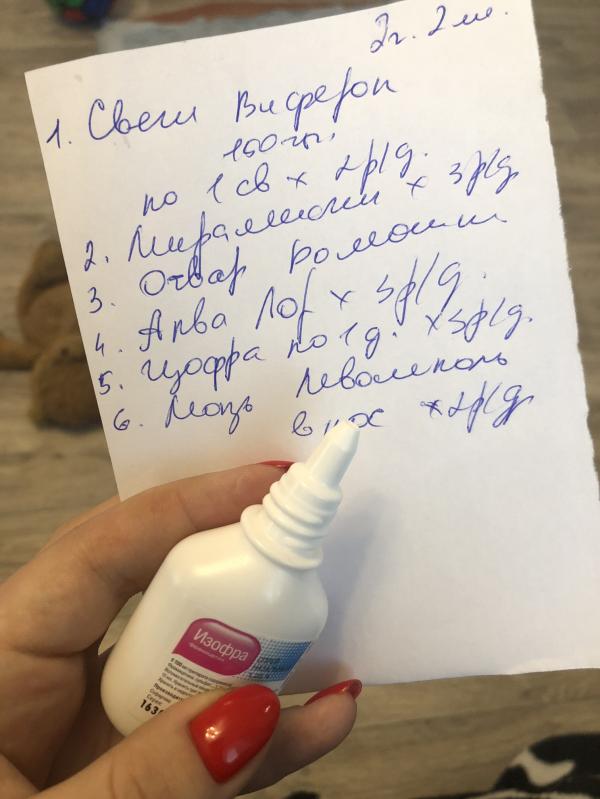 2г. 2м.
1. Свечи Виферон
150 тыс.
по 1 св × 2р/д.
2. Мирамистин × 3р/д
3. Отвар ромашки
4. Аква Лор × 3р/д.
5. Изофра по 1 д. × 3р/д.
6. Мазь Левомеколь
в нос × 2р/д.
Изофра
163